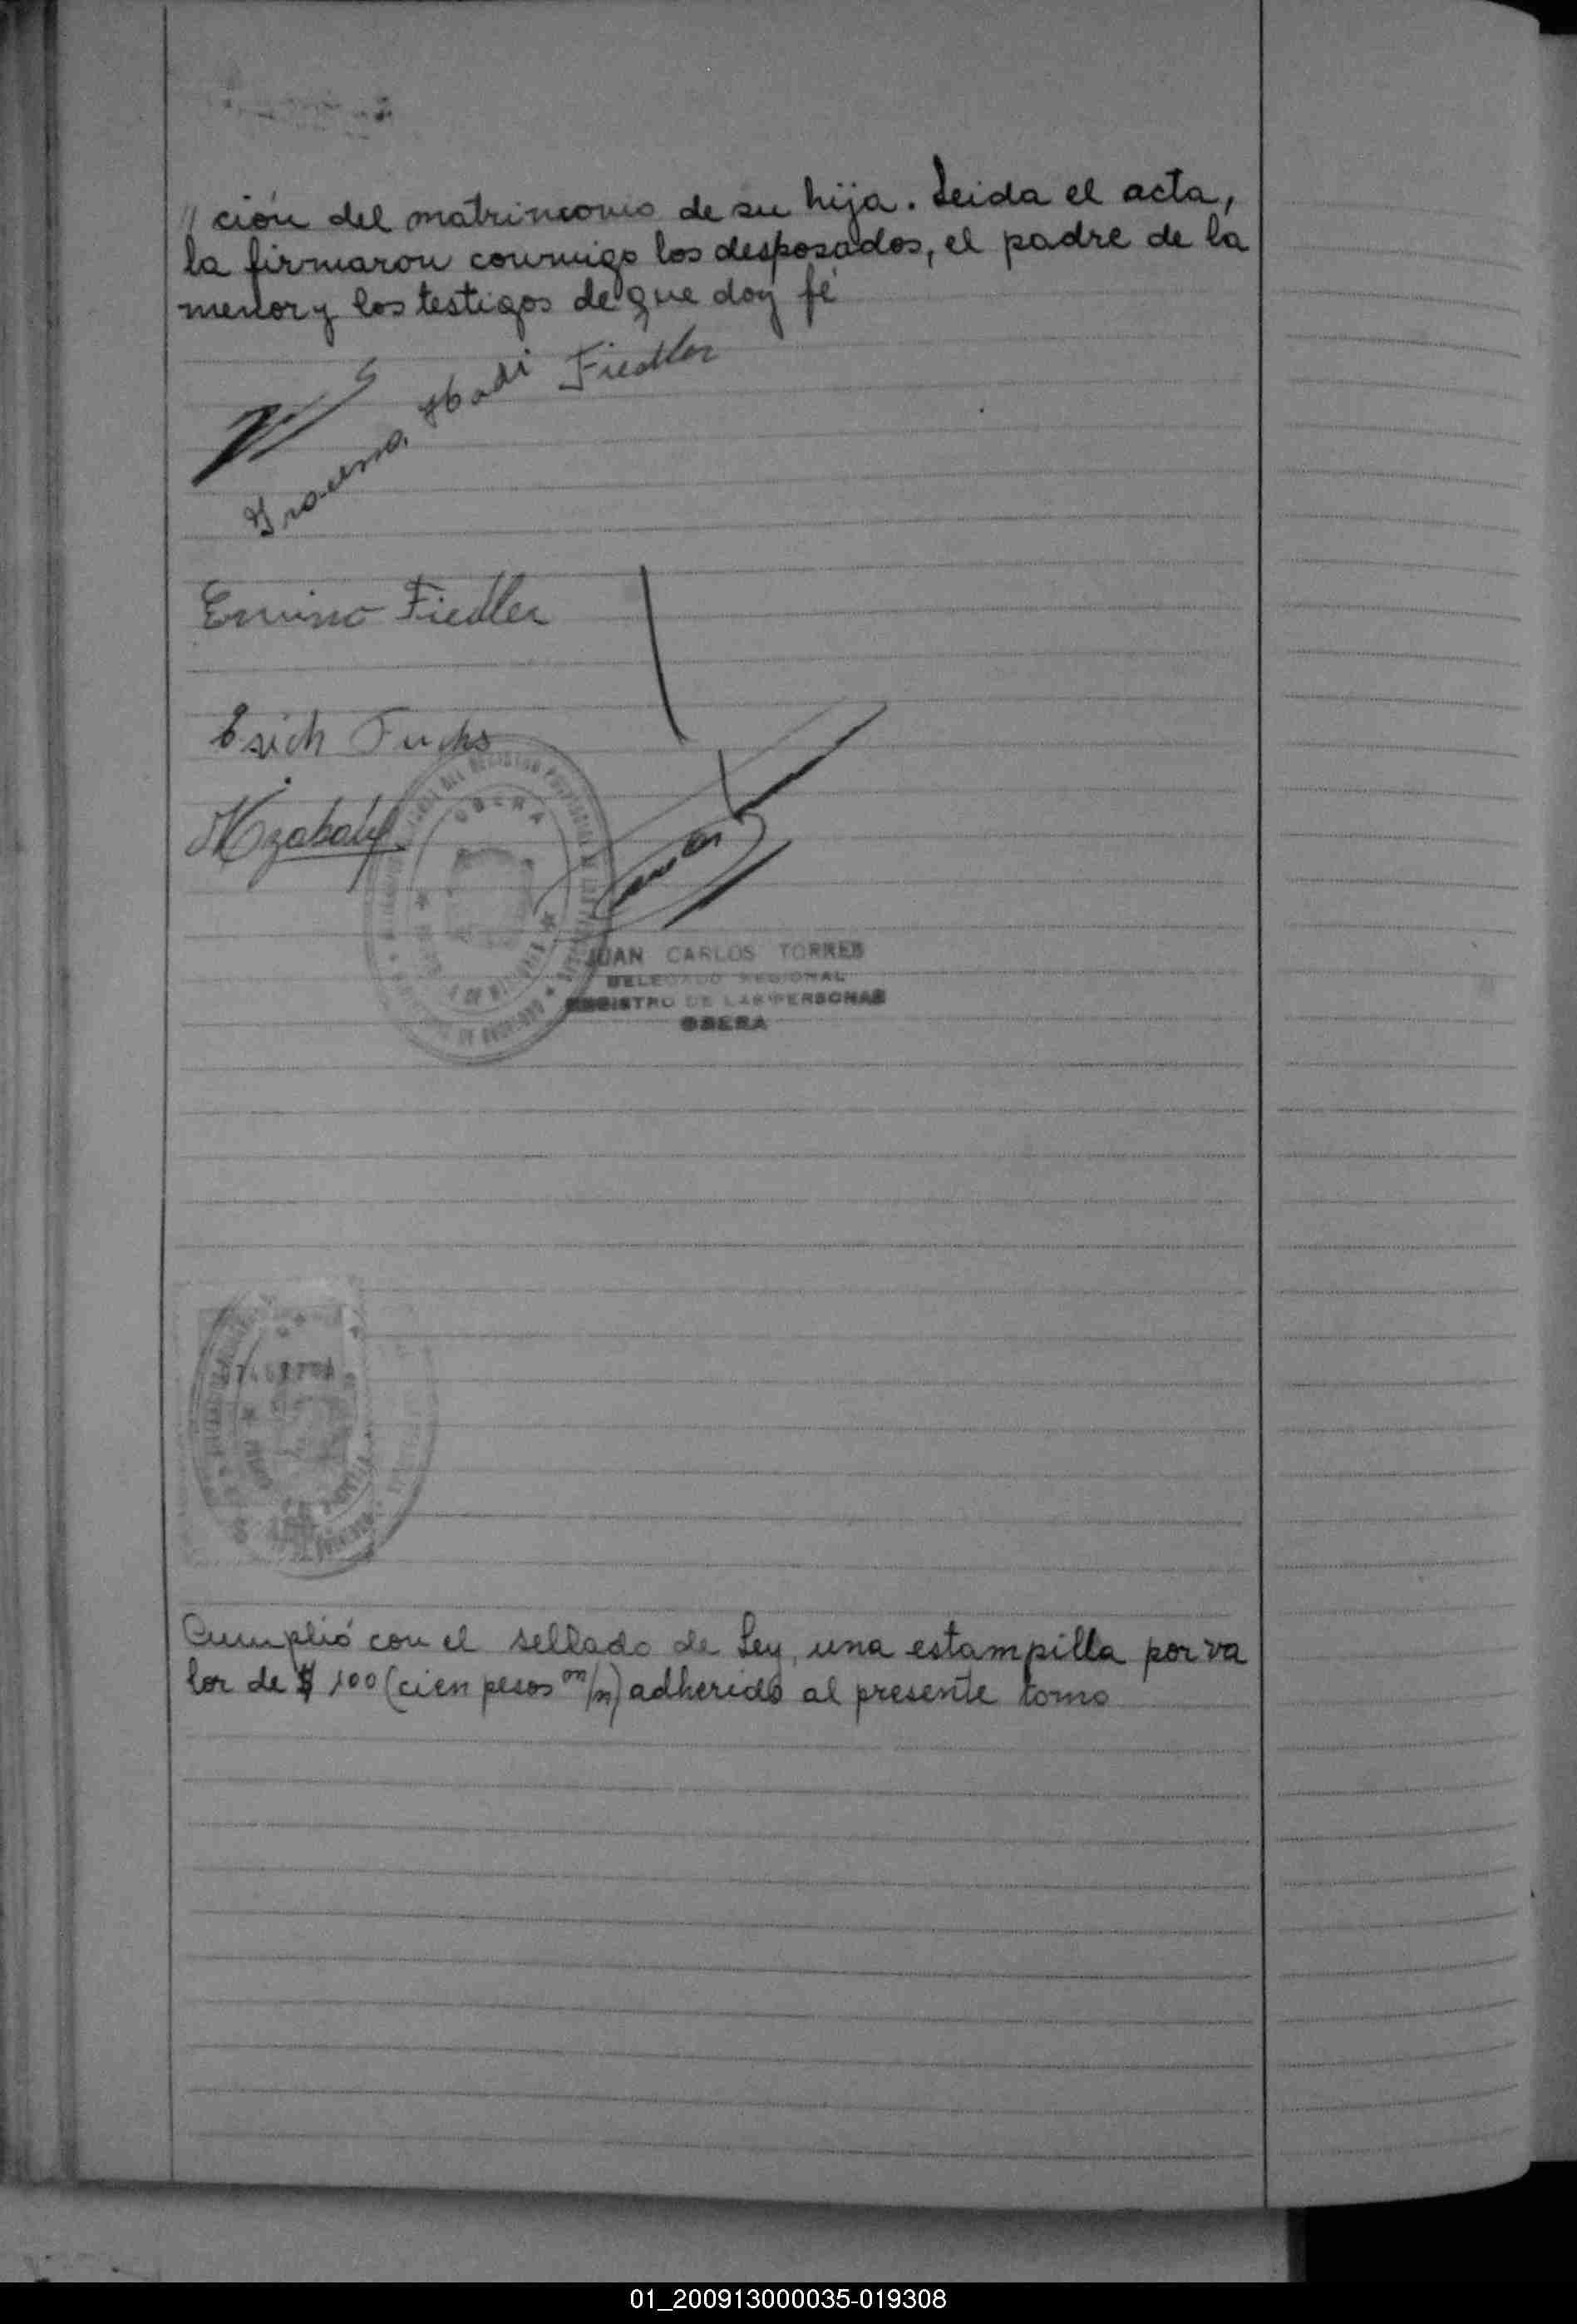 // ción del matrimonio de su hija. Leida el acta,
la firmaron conmigo los desposados, el padre de la
menor y los testigos de que doy fé
Fiedler
Ervino Fiedler
Erich Fuchs
OBERA
JUAN CARLOS TORRES
DELEGADO REGIONAL
REGISTRO DE LAS PERSONAS
OBERA
Cumplió con el sellado de Ley, una estampilla por va
lor de $ 100 (cien pesos m/n) adherido al presente tomo
01_200913000035-019308